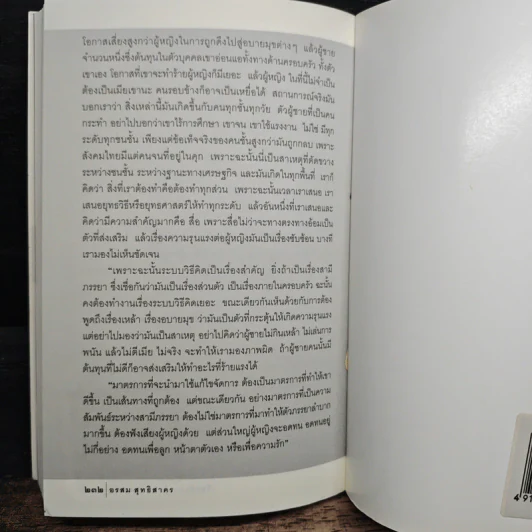 โอกาสเสี่ยงสูงกว่าผู้หญิงในการถูกดึงไปสู่อบายมุขต่างๆ แล้วผู้ชาย
จำนวนหนึ่งซึ่งต้นทุนในตัวบุคคลเขาอ่อนแอทั้งทางด้านครอบครัว ทั้งตัว
เขาเอง โอกาสที่เขาจะทำร้ายผู้หญิงก็มีเยอะ แล้วผู้หญิง ในที่นี้ไม่จำเป็น
ต้องเป็นเมียเขานะ คนรอบข้างก็อาจเป็นเหยื่อได้ สถานการณ์จริงมัน
บอกเราว่า สิ่งเหล่านี้มันเกิดขึ้นกับคนทุกชั้นทุกวัย ตัวผู้ชายที่เป็นคน
กระทำ อย่าไปบอกว่าเขาไร้การศึกษา เขาจน เขาใช้แรงงาน ไม่ใช่ มีทุก
ระดับทุกชนชั้น เพียงแต่ข้อเท็จจริงของคนชั้นสูงกว่ามันถูกกลบ เพราะ
สังคมไทยมีแต่คนจนที่อยู่ในคุก เพราะฉะนั้นนี่เป็นสาเหตุที่ตัดขวาง
ระหว่างชนชั้น ระหว่างฐานะทางเศรษฐกิจ และมันเกิดในทุกพื้นที่ เราก็
คิดว่า สิ่งที่เราต้องทำคือต้องทำทุกส่วน เพราะฉะนั้นเวลาเราเสนอ เรา
เสนอยุทธวิธีหรือยุทธศาสตร์ให้ทำทุกระดับ แล้วอันหนึ่งที่เราเสนอและ
คิดว่ามีความสำคัญมากคือ สื่อ เพราะสื่อไม่ว่าจะทางตรงทางอ้อมเป็น
ตัวที่ส่งเสริม แล้วเรื่องความรุนแรงต่อผู้หญิงมันเป็นเรื่องซับซ้อน บางที
เรามองไม่เห็นชัดเจน
"เพราะฉะนั้นระบบวิธีคิดเป็นเรื่องสำคัญ ยิ่งถ้าเป็นเรื่องสามี
ภรรยา ซึ่งเชื่อกันว่ามันเป็นเรื่องส่วนตัว เป็นเรื่องภายในครอบครัว ฉะนั้น
คงต้องทำงานเรื่องระบบวิธีคิดเยอะ ขณะเดียวกันเห็นด้วยกับการต้อง
พูดถึงเรื่องเหล้า เรื่องอบายมุข ว่ามันเป็นตัวที่กระตุ้นให้เกิดความรุนแรง
แต่อย่าไปมองว่ามันเป็นสาเหตุ อย่าไปคิดว่าผู้ชายไม่กินเหล้า ไม่เล่นการ
พนัน แล้วไม่ตีเมีย ไม่จริง จะทำให้เรามองภาพผิด ถ้าผู้ชายคนนั้นมี
ต้นทุนที่ไม่ดีก็อาจส่งเสริมให้ทำอะไรที่ร้ายแรงได้
"มาตรการที่จะนำมาใช้แก้ไขจัดการ ต้องเป็นมาตรการที่ทำให้เขา
ดีขึ้น เป็นเส้นทางที่ถูกต้อง แต่ขณะเดียวกัน อย่างมาตรการที่เป็นความ
สัมพันธ์ระหว่างสามีภรรยา ต้องไม่ใช่มาตรการที่มาทำให้ตัวภรรยาลำบาก
มากขึ้น ต้องฟังเสียงผู้หญิงด้วย แต่ส่วนใหญ่ผู้หญิงจะอดทน อดทนอยู่
ไม่กี่อย่าง อดทนเพื่อลูก หน้าตาตัวเอง หรือเพื่อความรัก"
๒๓๒ | อรสม สุทธิสาคร
4 91